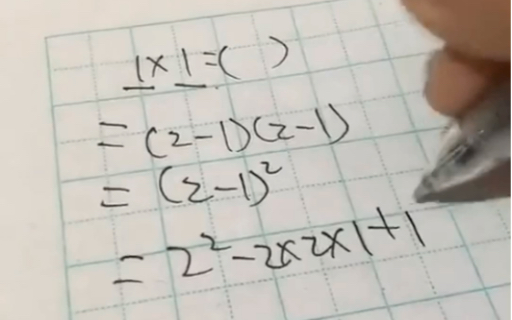 1×1=( )
=(2-1)(2-1)
=(2-1)²
=2²-2×2×1+1